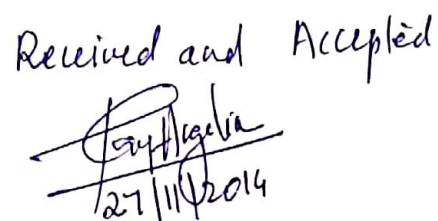 Received and Accepted
27/11/2014